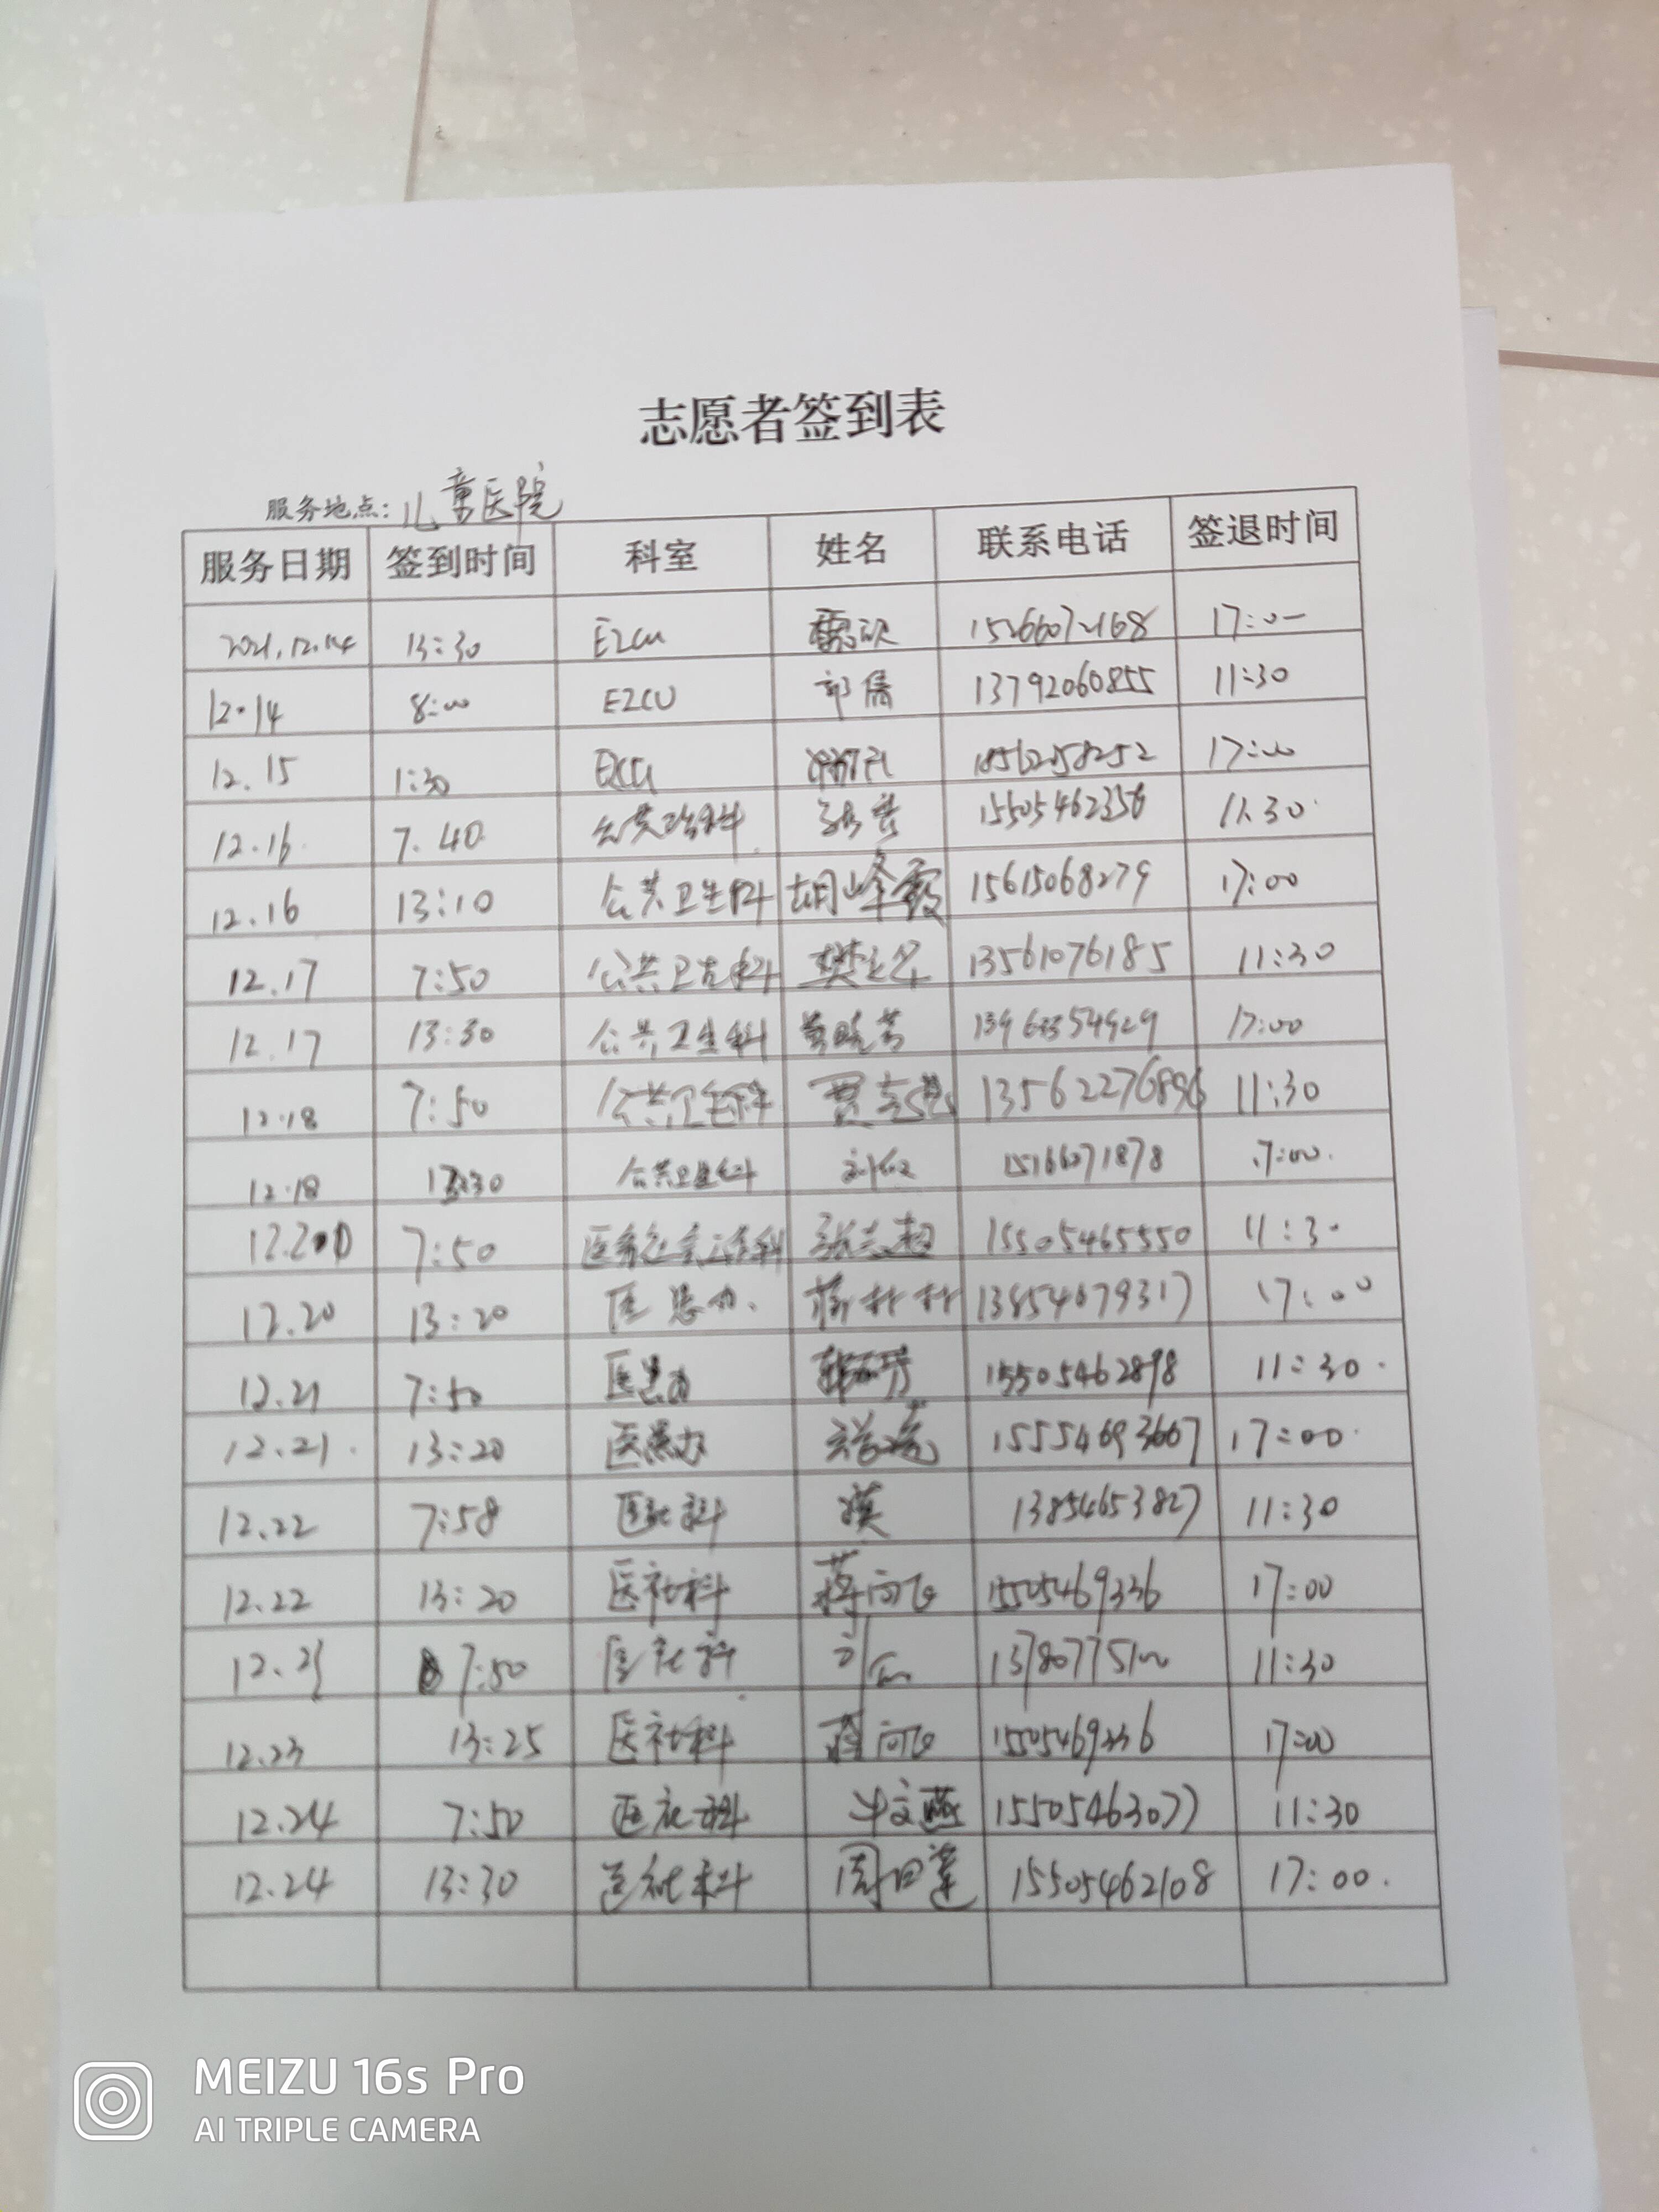 志愿者签到表
服务地点：儿童医院
服务日期 签到时间 科室 姓名 联系电话 签退时间
2021.12.14 13:30 15266072168 17:00
12.14 8:00 EZCU 郭倩 13792060855 11:30
12.15 1:30 18562258252 17:00
12.16 7.40 15505462356 11.30
12.16 13:10 公共卫生科 胡峰霞 15615068279 17:00
12.17 7:50 公共卫生科 13561076185 11:30
12.17 13:30 公共卫生科 17:00
12.18 7:50 公共卫生科 13562276896 11:30
12.18 公共卫生科 15166071878 17:00
7:50 医务社会工作科 张志超 15505465550 11:30
12.20 13:20 13854679317 17:00
12.21 7:50 15505462898 11:30
12.21 13:20 15554693667 17:00
12.22 7:58 医社科 13854653827 11:30
12.22 13:20 医社科 蒋向飞 15505469336 17:00
12.23 7:50 医社科 11:30
12.23 13:25 医社科 蒋向飞 15505469336 17:00
12.24 7:50 医社科 牛文燕 15505463077 11:30
12.24 13:30 医社科 周曰莲 15505462108 17:00
MEIZU 16s Pro
AI TRIPLE CAMERA